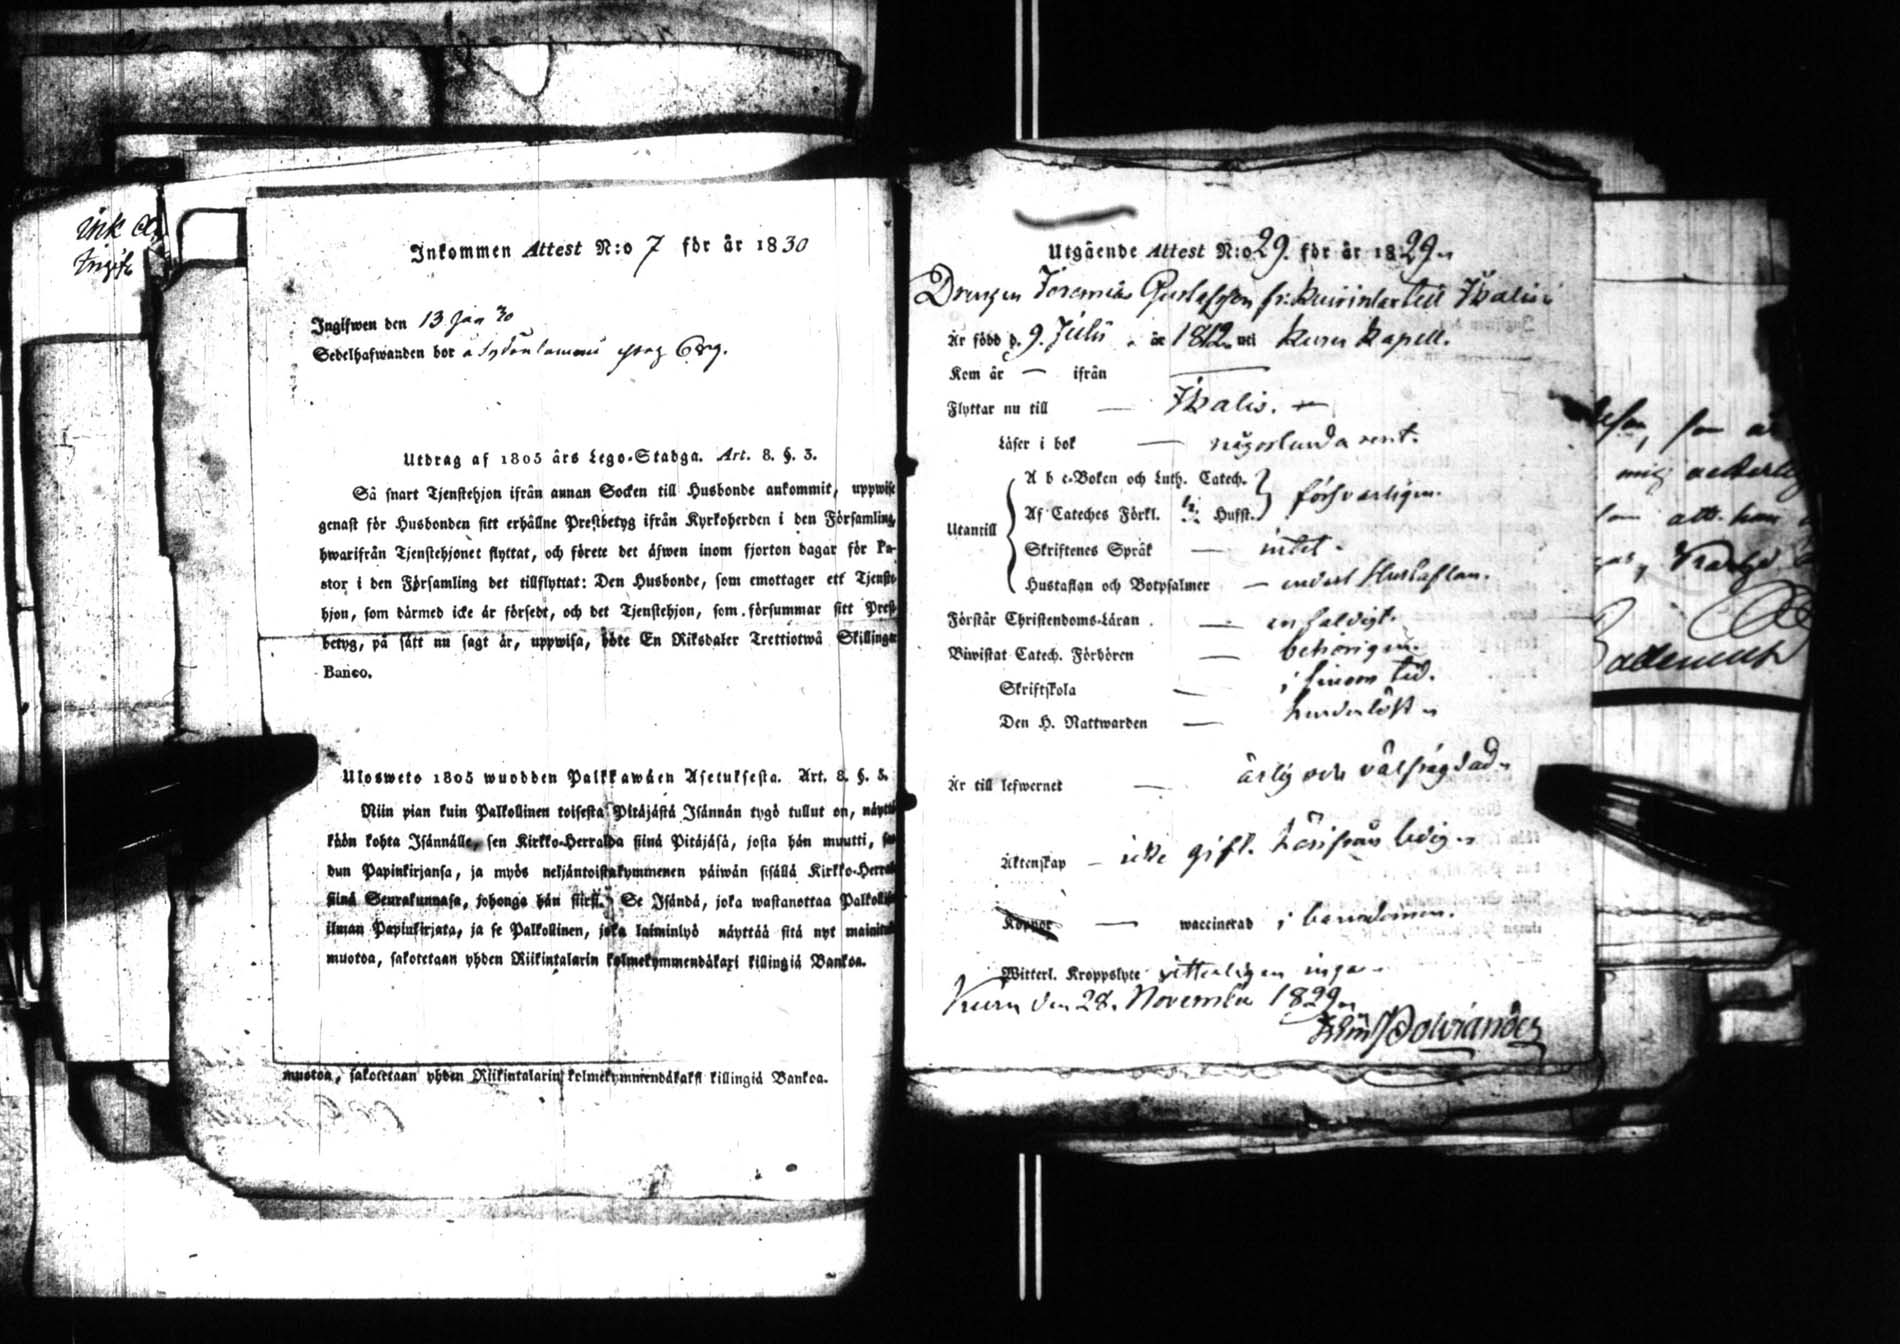 Ink
Ingift
Inkommen Attest N:o 7 för år 1830
Ingifwen den 13 Jan 30
Sedelhafwanden bor å
Utdrag af 1805 års Lego-Stadga. Art. 8. §. 3.
Så snart Tjenstehjon ifrån annan Socken till Husbonde ankommit, uppwise
genast för Husbonden sitt erhållne Prestbetyg ifrån Kyrkoherden i den Församling,
hwarifrån Tjenstehjonet flyttat, och förete det äfwen inom fjorton dagar för Pa-
stor i den Församling det tillflyttat: Den Husbonde, som emottager ett Tjenste-
hjon, som därmed icke är försedt, och det Tjenstehjon, som försummar sitt Prest-
betyg, på sätt nu sagt är, uppwisa, böte En Riksdaler Trettiotwå Skillingar
Banco.
Ulosweto 1805 wuodden Palkkawäen Asetuksesta. Art. 8. §. 3.
Niin pian kuin Palkollinen toisesta Pitäjästä Isännän tygö tullut on, näyttä-
kään kohta Isännälle, sen Kirkko-Herralda siinä Pitäjäsä, josta hän muutti, saa-
dun Papinkirjansa, ja myös neljäntoistakymmenen päiwän sisällä Kirkko-Herralle
siinä Seurakunnasa, johonga hän siirsi. Se Isändä, joka wastanottaa Palkollisen
ilman Papinkirjata, ja se Palkollinen, joka laiminlyö näyttää sitä nyt mainitulla
muotoa, sakotetaan yhden Riikintalarin kolmekymmendäkaxi killingiä Bankoa.
muotoa, sakotetaan yhden Riikintalarin kolmekymmendäkaksi killingiä Bankoa.
Utgående Attest N:o 29. för år 1829
Drengen Jeremias Gustafsson fr. till Ikalis
Är född d. 9. Julii år 1812 uti Kuru Kapell.
Kom år — ifrån —
Flyttar nu till — Ikalis. —
Läser i bok — någorlunda rent.
Utantill
A b c-Boken och Luth. Catech.
Af Cateches Förkl. 1/2 Hufst. försvarligen.
Skriftenes Språk — intet.
Hustaflan och Botpsalmer — endast Hustaflan.
Förstår Christendoms-Läran — enfaldigt.
Biwistat Catech. Förhören — behörigen.
Skriftskola — i sinom tid.
Den H. Nattwarden —
Är till lefwernet — ärlig och välfrägdad
Äktenskap — icke gift. härifrån ledig
Koppor — waccinerad i barndomen.
Witterl. Kroppslyte witterligen inga
Kuru den 28. November 1829